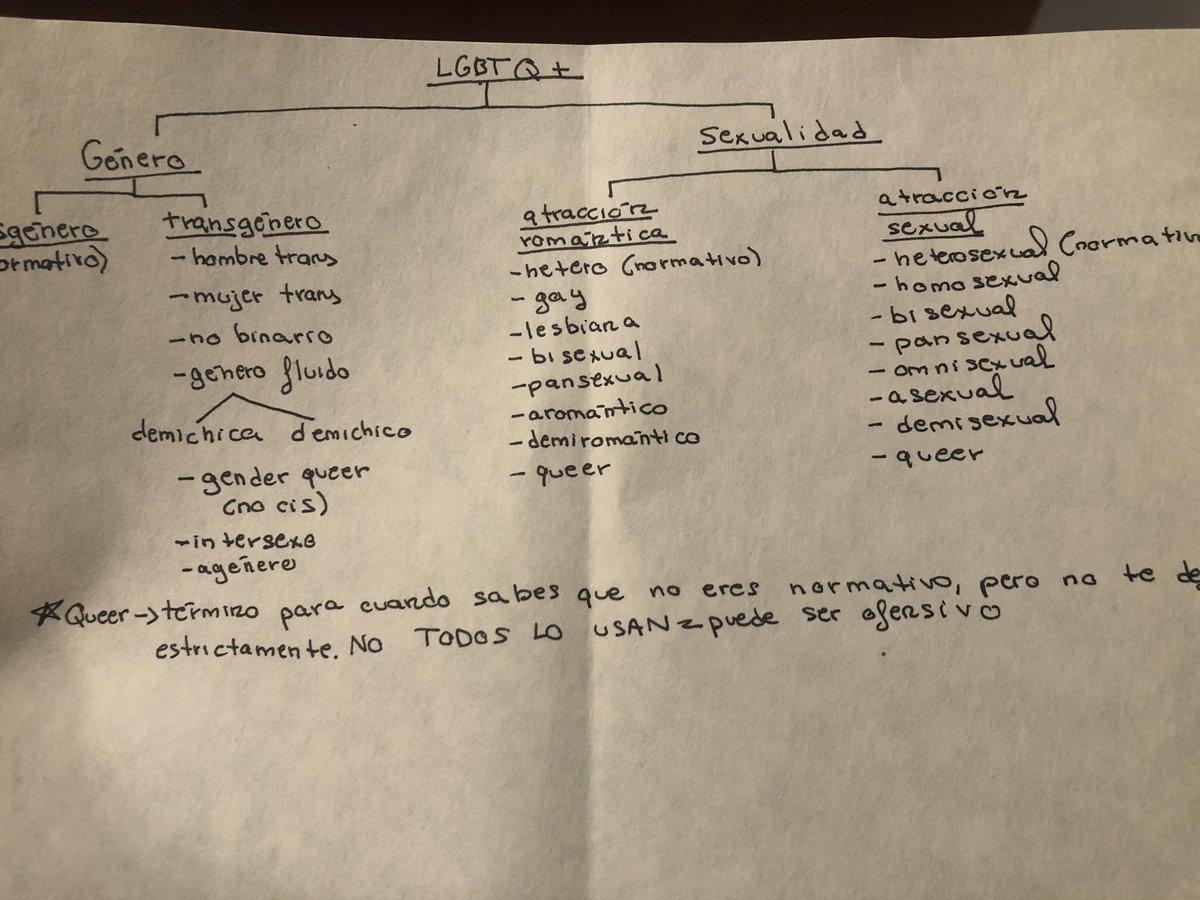 LGBTQ+
Género
sexualidad
sgénero
ormativo)
transgénero
-hombre trans
-mujer trans
-no binario
-género fluido
demichica demichico
-gender queer
(no cis)
-intersexo
-agénero
atracción
romántica
-hetero (normativo)
- gay
-lesbiana
- bisexual
-pansexual
-aromántico
-demiromántico
- queer
atracción
sexual
- heterosexual (normativ
- homosexual
- bisexual
- pansexual
- omnisexual
- asexual
- demisexual
- queer
☆Queer→término para cuando sabes que no eres normativo, pero no te de
estrictamente. NO TODOS LO USAN = puede ser ofensivo